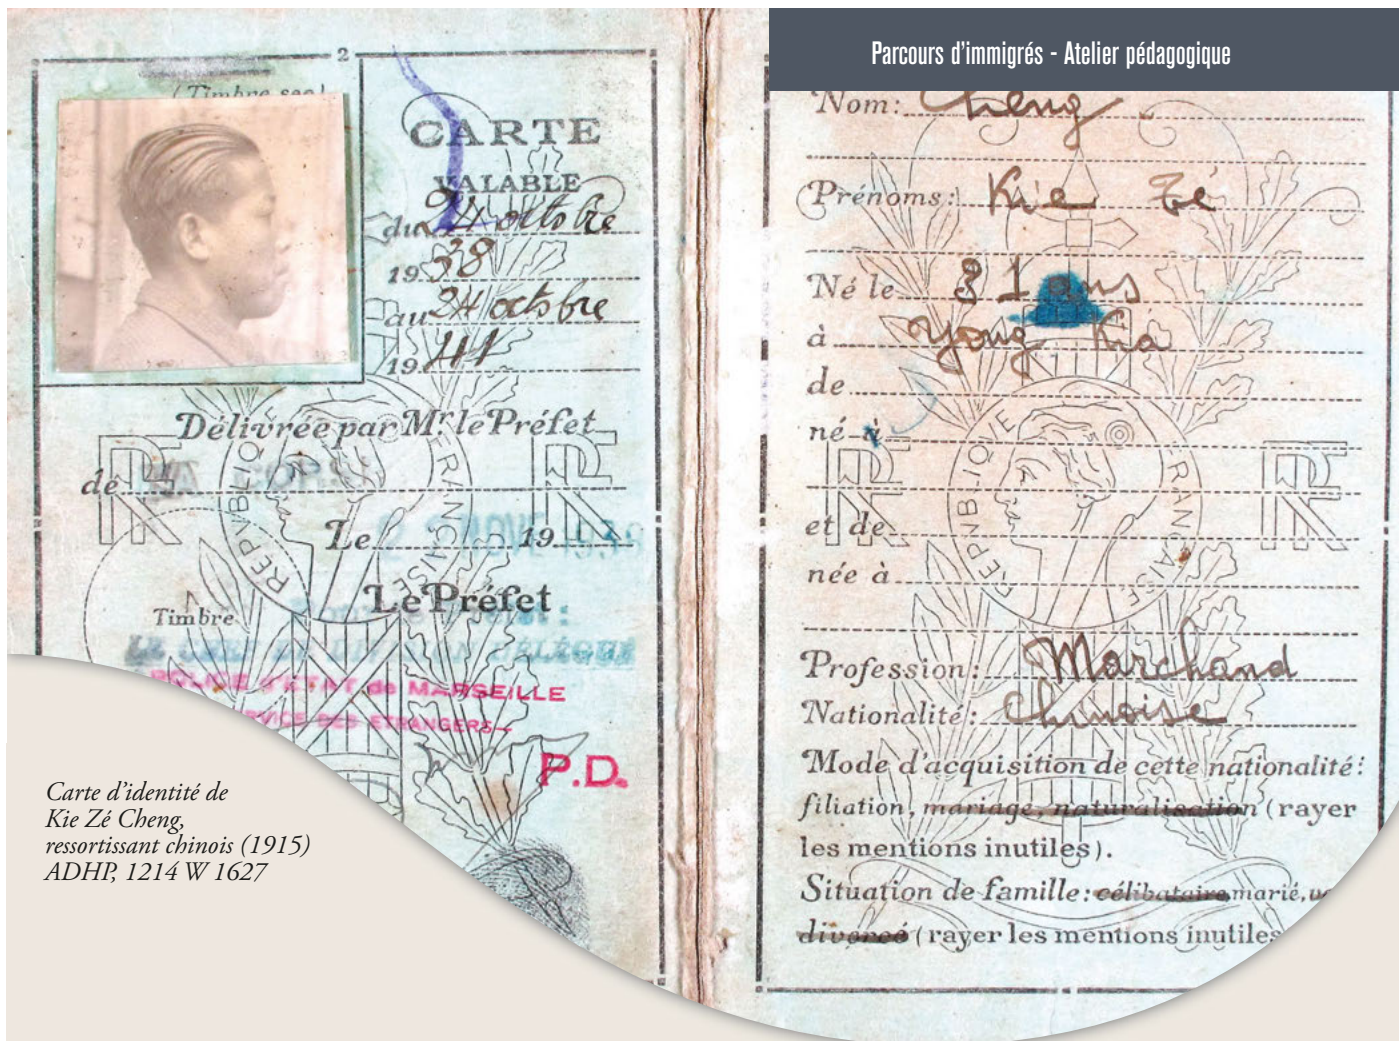 Parcours d'immigrés - Atelier pédagogique
2
(Timbre sec)
CARTE
VALABLE
du 24 octobre
1938
au 24 octobre
1941
Délivrée par Mr. le Préfet
de
Le 2 NOVE 1938
19
Le Préfet
Timbre
LE CHEF DE DIVISION DÉLÉGUÉ
POLICE D'ETAT de MARSEILLE
SERVICE DES ETRANGERS
P.D.
REPVBLIQVE FRANÇAISE
RF
RF
Nom: Cheng
Prénoms: Kie Zé
Né le 31 ans
à Yong Kia
de
né à
et de
née à
REPVBLIQVE FRANÇAISE
RF
RF
Profession: Marchand
Nationalité: Chinoise
Mode d'acquisition de cette nationalité:
filiation, mariage, naturalisation (rayer
les mentions inutiles).
Situation de famille: célibataire, marié,
divorcé (rayer les mentions inutiles
Carte d'identité de
Kie Zé Cheng,
ressortissant chinois (1915)
ADHP, 1214 W 1627